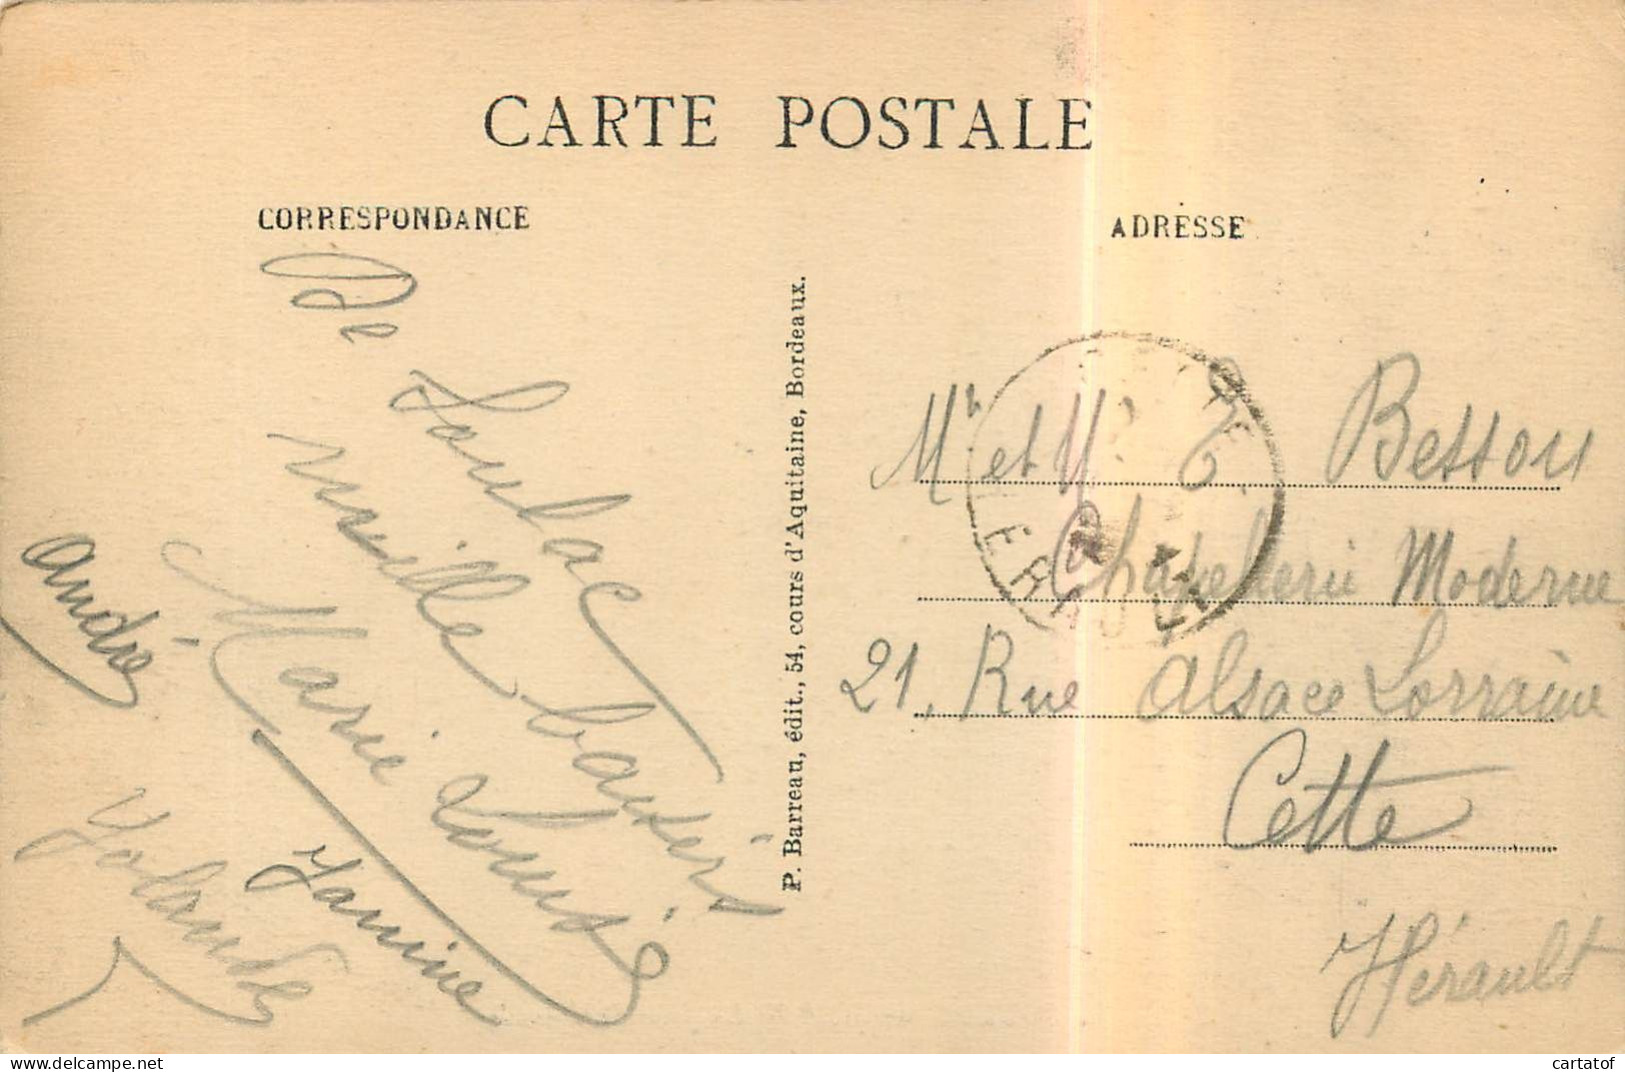 CARTE POSTALE
CORRESPONDANCE
ADRESSE
De
Soulac
mille baisers
Marie Louise
Janine
André
Yolande
P. Barreau, édit., 54, cours d'Aquitaine, Bordeaux.
Mr et M Besson
Chapellerie Moderne
21, Rue Alsace Lorraine
Cette
Hérault
cartatof